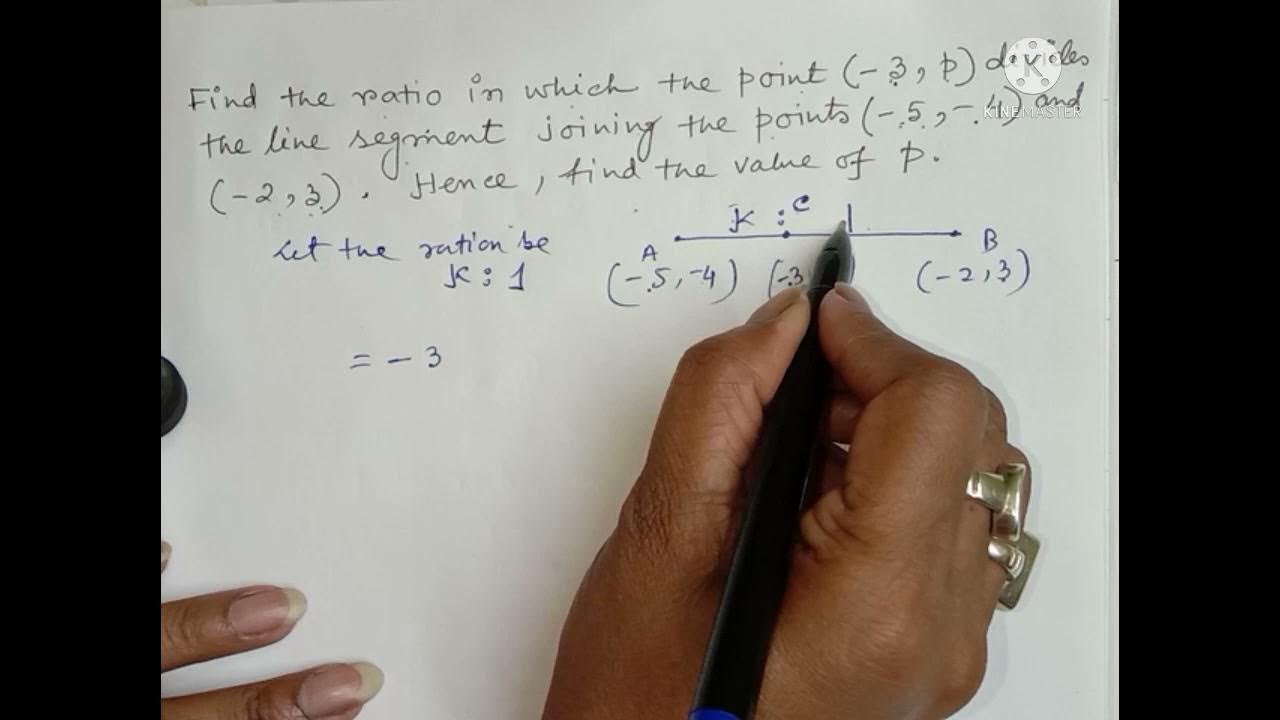 Find the ratio in which the point (-3, p) divides
the line segment joining the points (-5, -4) and
(-2, 3). Hence, find the value of p.
K : C 1
Let the ration be A B
K : 1 (-5, -4) (-3 ) (-2, 3)
= - 3
K
KINEMASTER